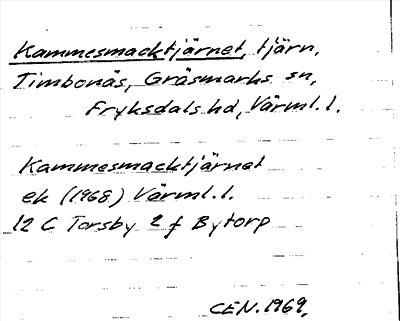 Kammesmacktjärnet, tjärn,
Timbonäs, Gräsmarks sn,
Fryksdals hd, Värml. l.
Kammesmacktjärnet
ek (1968) Värml. l.
12 C Torsby 2 f Bytorp
CEN. 1969.